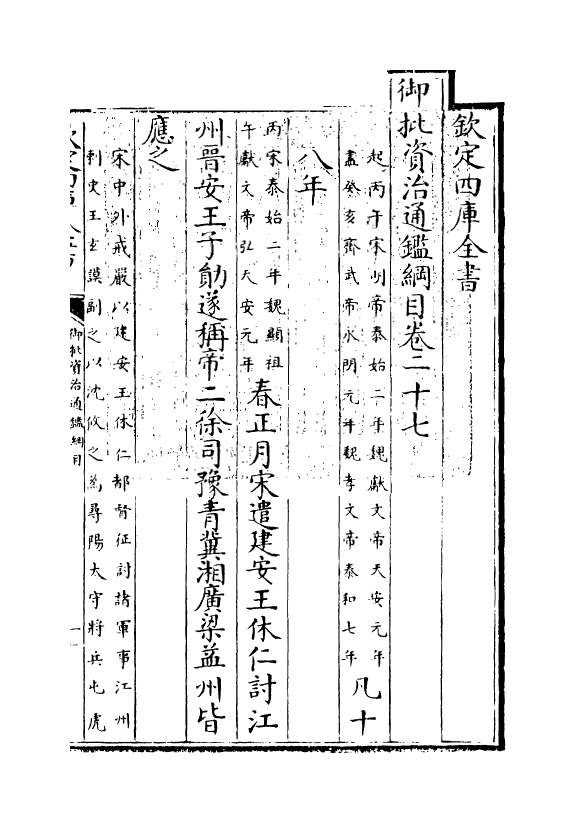 欽定四庫全書
御批資治通鑑綱目卷二十七
起丙午宋明帝泰始二年魏獻文帝天安元年
盡癸亥齊武帝永明元年魏孝文帝泰和七年
凡十
八年
丙宋泰始二年魏顯祖
午獻文帝弘天安元年
春正月宋遣建安王休仁討江
州晉安王子勛遂稱帝二徐司豫青冀湘廣梁益州皆
應之
宋中外戒嚴以建安王休仁都督征討諸軍事江州
刺史王玄謨副之以沈攸之為尋陽太守將兵屯虎
御批資治通鑑綱目
一